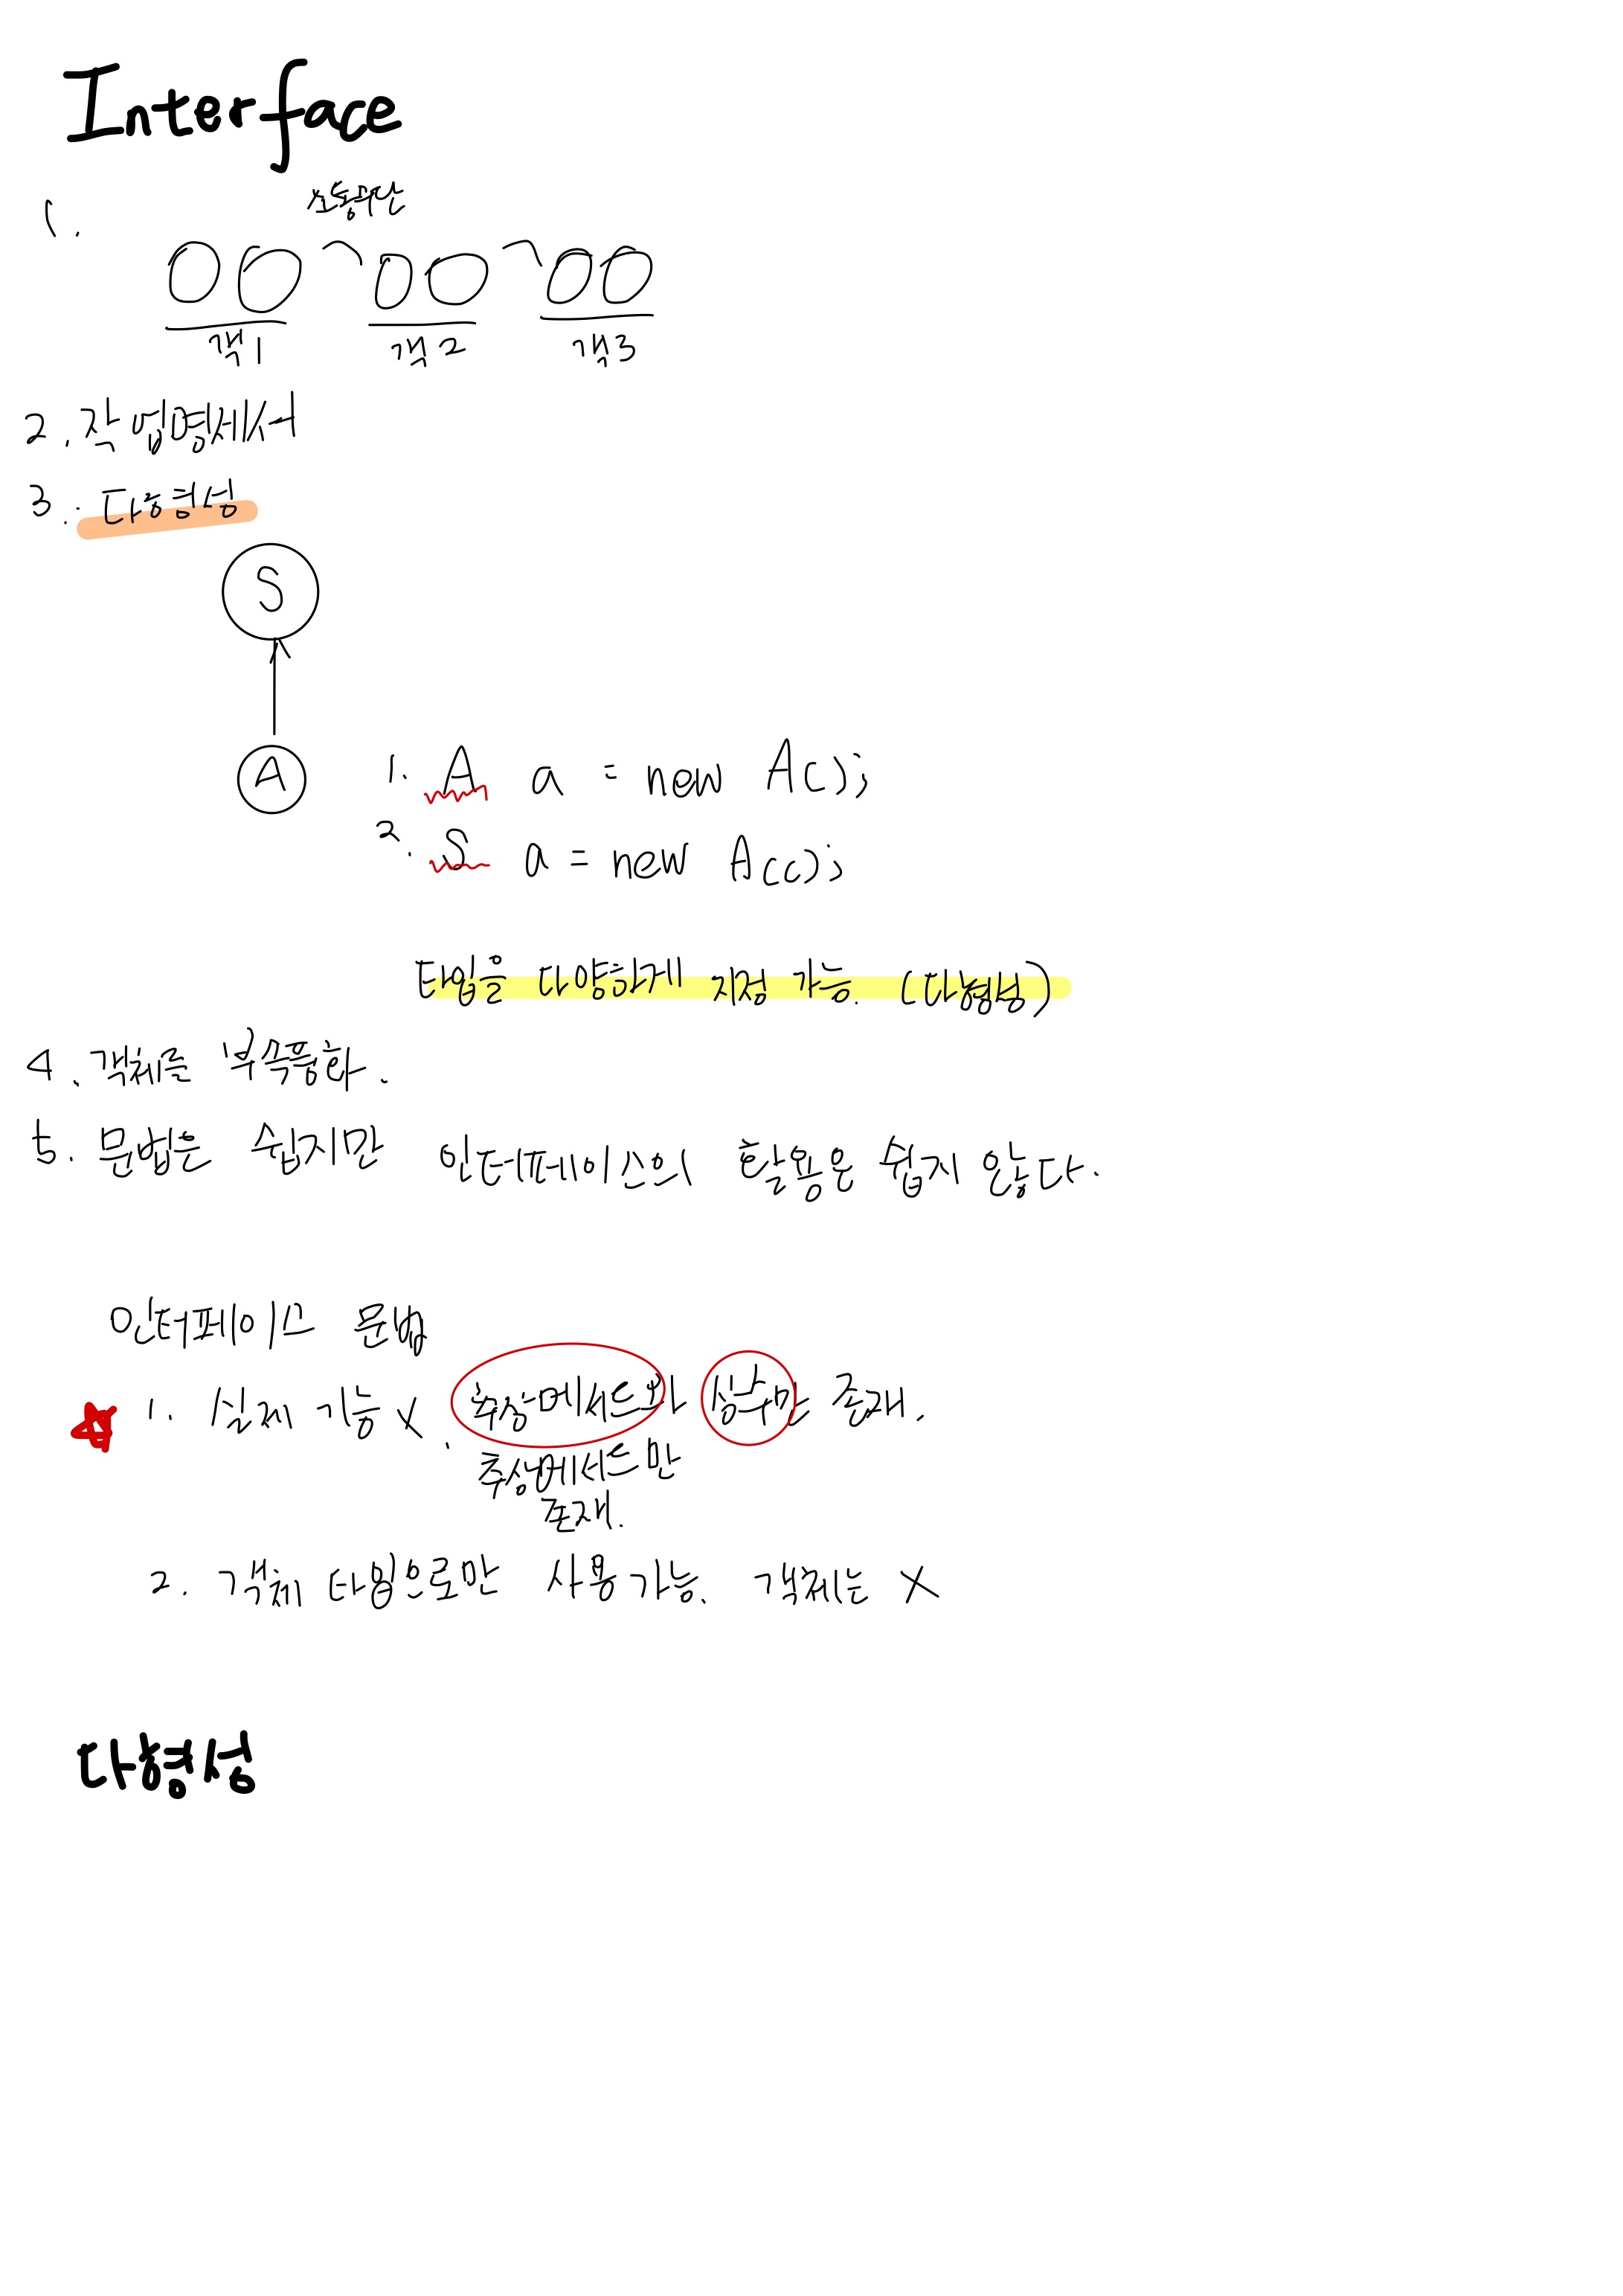 Interface
1.
소통수단
객1 객2 객3
2. 작업명세서
3. 다형성
S
A
1. A a = new A();
2. S a = new A();
타입을 다양하게 지정 가능. (다형성)
4. 객체를 부속품화.
5. 문법은 쉽지만 인터페이스의 활용은 쉽지 않다.
인터페이스 문법
1. 실제 기능 X. 추상메서드와 상수만 존재.
추상메서드만
존재.
2. 객체 타입으로만 사용가능. 객체는 X
다형성